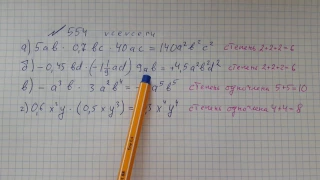 № 554 vcevce.ru
а) 5ab · 0,7 bc · 40 ac = 140a²b²c² степень 2+2+2=6
б) -0,45 bd · (-1 1/9 ad) 9ab = 4,5a²b²d² степень 2+2+2=6
в) - a³ b · 3 a² b⁴ = a⁵ b⁵ степень одночлена 5+5=10
г) 0,6 x³y · (0,5 x y³) = x⁴ y⁴ степень одночлена 4+4=8